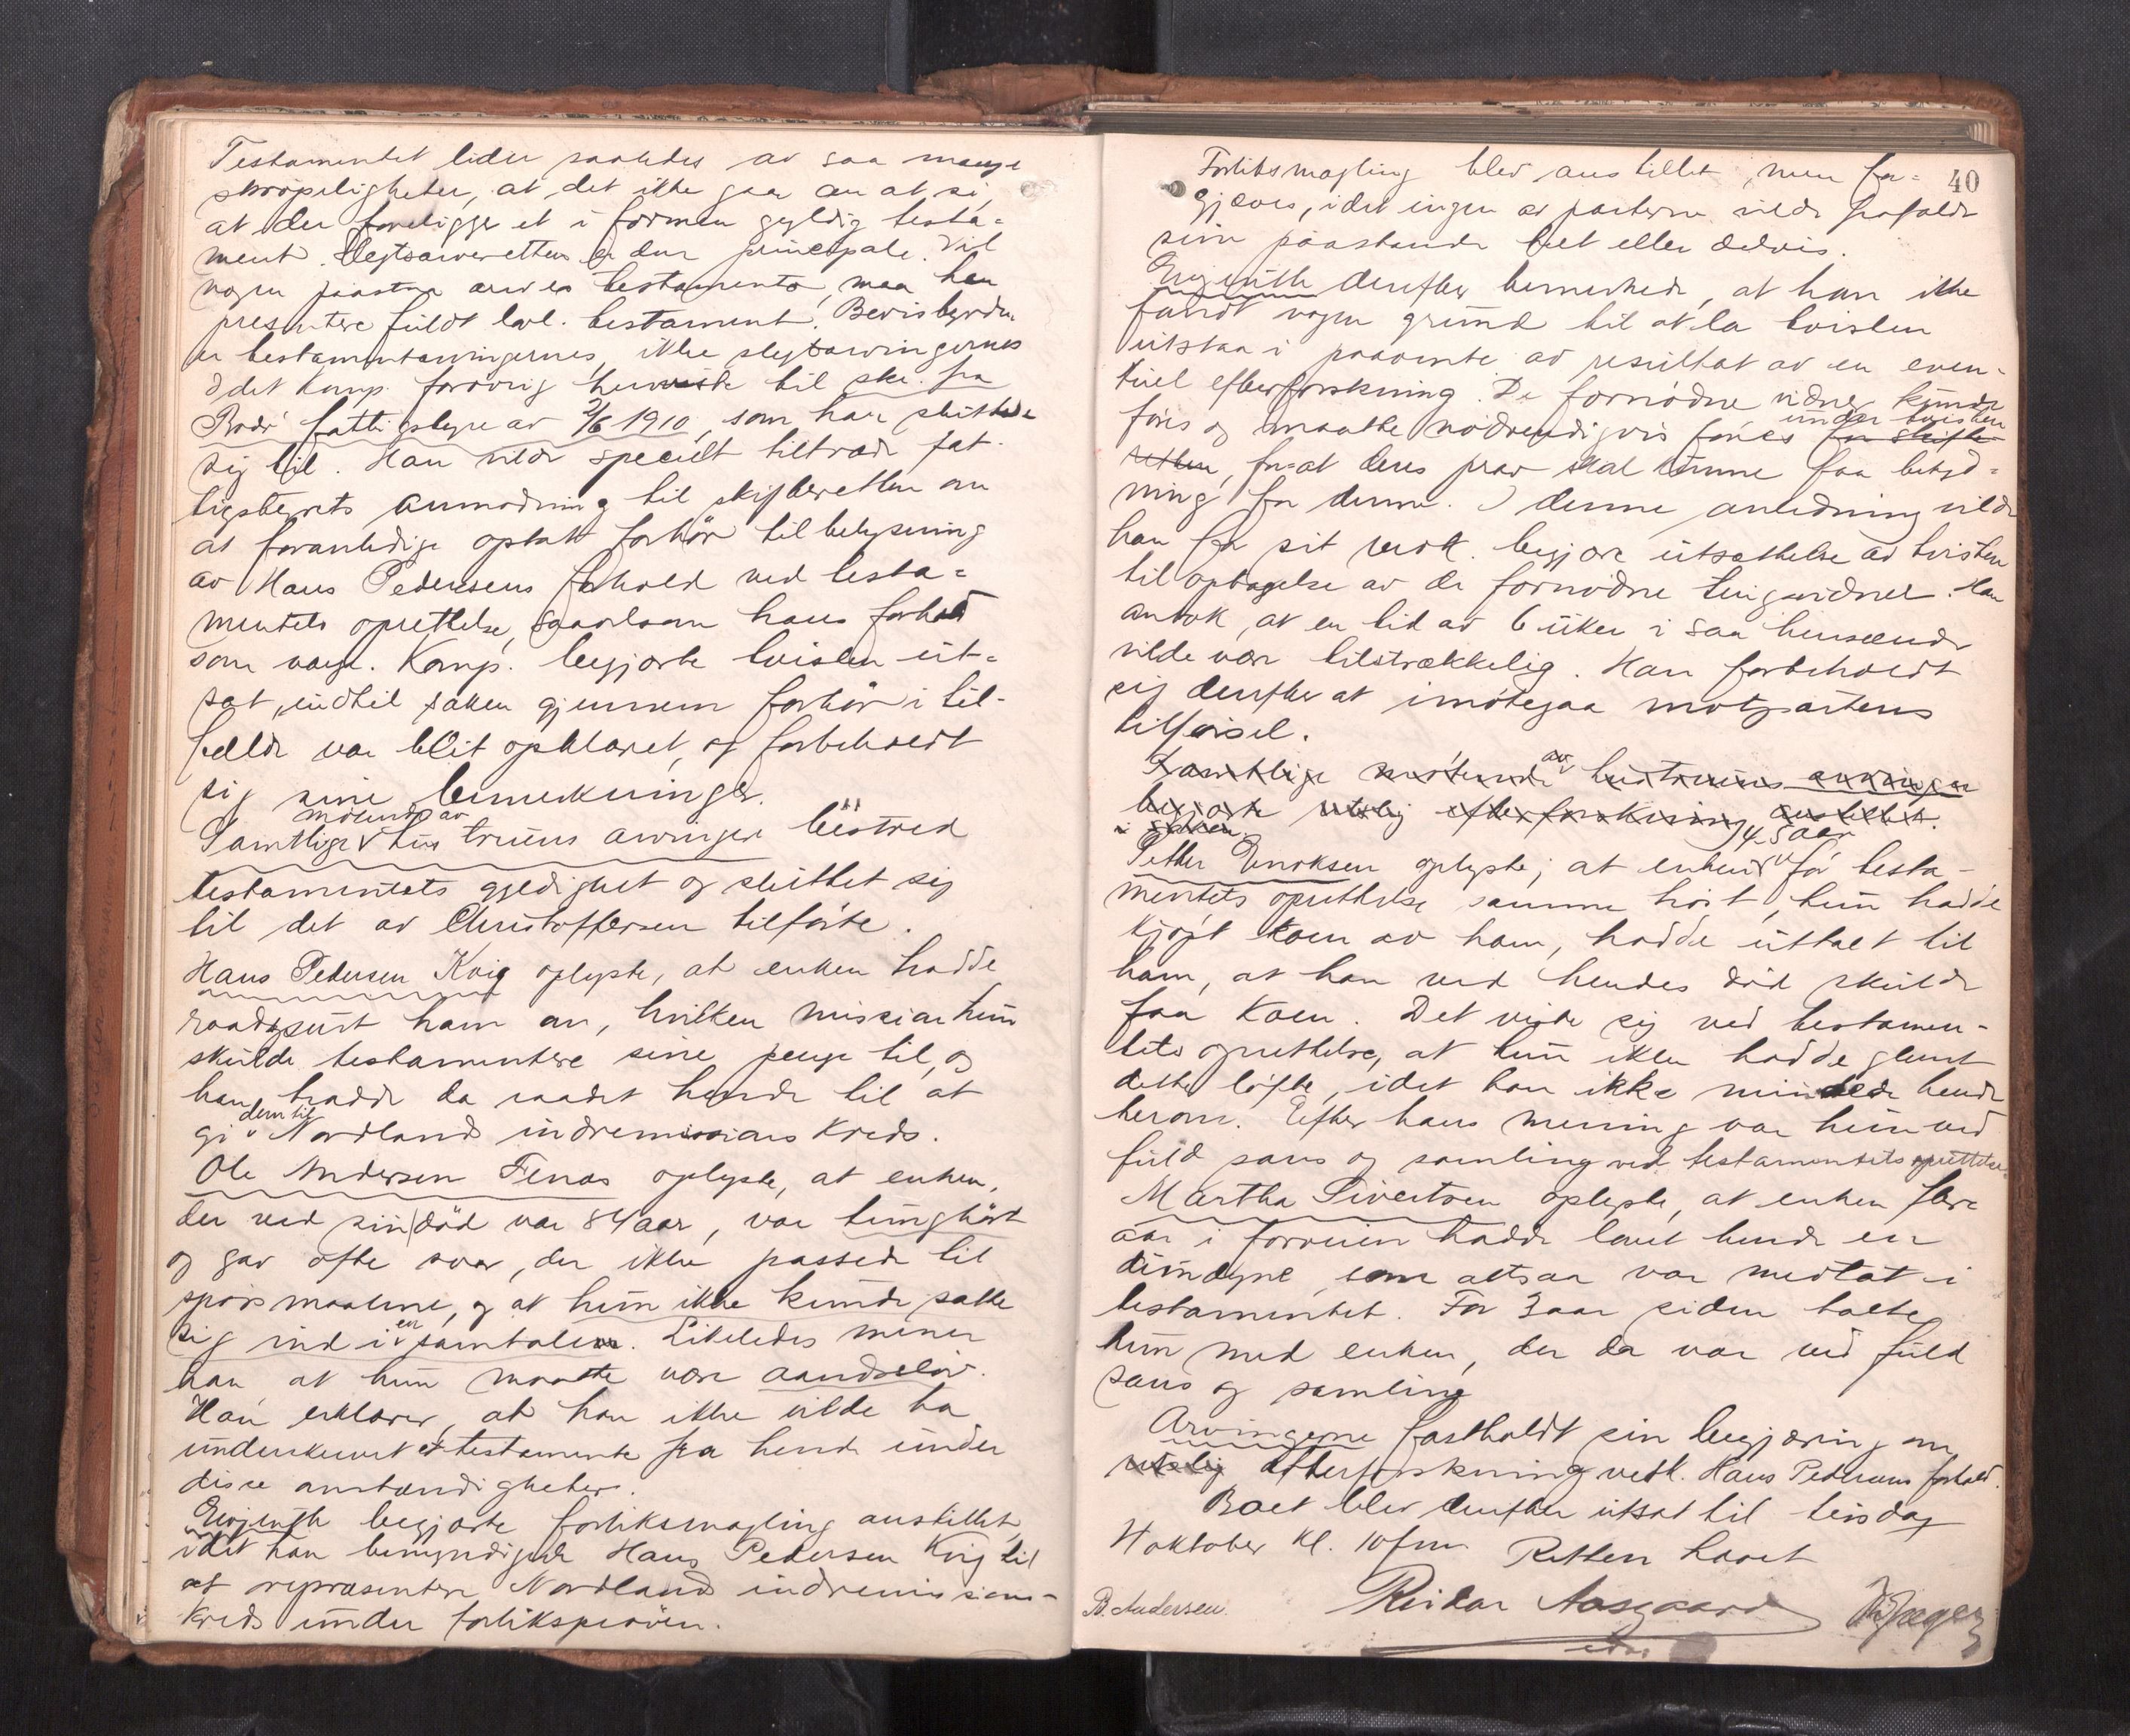 Testamentet lider saaledes av saa mange
skröpeligheter, at det ikke gaar an at si,
at der foreligger et i formen gyldig testa=
ment. Slegtsarveretten er den principale. Vil
nogen paastaa arv ex testamento, maa han
presentere fuldt lovl. testament. Bevisbyrden
er testamentarvingernes, ikke slegtsarvingernes
I det Komp. forövrig henviste til skr. fra
Rödö fattigstyre av 2/6 1910, som han sluttede
sig til. Han vilde specielt tiltræde fat-
tigstyrets anmodning til skifteretten om
at foranledige optatt forhör til belysning
av Hans Pedersens forhold ved testa=
mentets oprettelse, saavelsom hans forhold
som værge. Komp. begjærte tvisten ut=
sat, indtil saken gjennem forhör i til-
fælde var blit opklaret, og forbeholdt
sig sine bemerkninger.
mötende av
Samtlige hustruens arvinger bestred
testamentets gyldighet og sluttet sig
til det av Christoffersen tilförte.
Hans Pedersen Kvig oplyste, at enken hadde
raadspurt ham om, hvilken mission hun
skulde testamentere sine penge til, og
han hadde da raadet hende til at
dem til
gi Nordlands indremissions Kreds.
Ole Andersen Finas oplyste, at enken,
der ved sin död var 84 aar, var tunghört
og gav ofte svar, der ikke passede til
spörsmaalene, og at hun ikke kunde sætte
en
sig ind i samtale. Likeledes mener
han at hun maatte være aandsslöv.
Han erklærer, at han ikke vilde ha
underskrevet et testamente fra hende under
disse omstændigheter.
begjærte forliksmægling anstillet,
idet han bemyndigede Hans Pedersen Kvig til
at repræsentere Nordlands indremissions-
Kreds under forliksprøven.
40
Forliksmægling blev anstillet, men for=
gjæves, idet ingen av parterne vilde frafalde
sin paastande helt eller delvis.
derefter bemerkede, at han ikke
fandt nogen grund til at la tvisten
utstaa i paavente av resultat av en even-
tuel efterforskning. De fornödne vidner kunde
under tvisten
föres og maatte nödvendigvis föres for skifte-
retten, for at deres prov skal kunne faa betyd=
ning for denne. I denne anledning vilde
han for sit vedk. begjære utsættelse av tvisten
til optagelse av de fornödne tingsvidner. Han
antok, at en tid av 6 uker i saa henseende
vilde være tilstrækkelig. Han forbeholdt
sig derefter at imötegaa motpartens
tilförsel.
av
Samtlige mötende hustruens arvinger
begjærte retslig efterforskning anstillet.
i saken.
4-5 aar
Petter Enoksen oplyste, at enken för testa-
mentets oprettelse samme höst, hun hadde
kjöpt koen av ham, hadde uttalt til
ham, at han ved hendes död skulde
faa Koen. Det viste sig ved testamen-
tets oprettelse, at hun ikke hadde glemt
dette löfte, idet han ikke mindede hende
herom. Efter hans mening var hun ved
fuld sans og samling ved testamentets oprettelse.
Martha Sivertsen oplyste, at enken flere
aar i forveien hadde lovet hende en
dundyne, som altsaa var medtat i
testamentet. For 3 aar siden talte
hun med enken, der da var ved fuld
sans og samling
Arvingerne fastholdt sin begjæring om
retslig efterforskning vedk. Hans Pedersens forhold.
Boet blev derefter utsat til tirsdag
4 oktober kl. 10 fm. Retten hævet
B. Andersen. Reidar Aasgaard